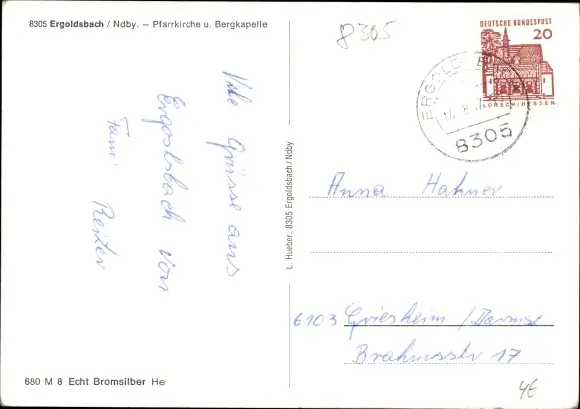 8305 Ergoldsbach / Ndby. — Pfarrkirche u. Bergkapelle
8305
DEUTSCHE BUNDESPOST
20
LORSCH/HESSEN
14.8.7
8305
Viele Grüsse aus
Ergolsbach von
Fam. Reiter
L. Hueber, 8305 Ergoldsbach/Ndby
Anna Hahner
6103 Griesheim /Darmst
Brahmsstr 17
680 M 8 Echt Bromsilber He
4€